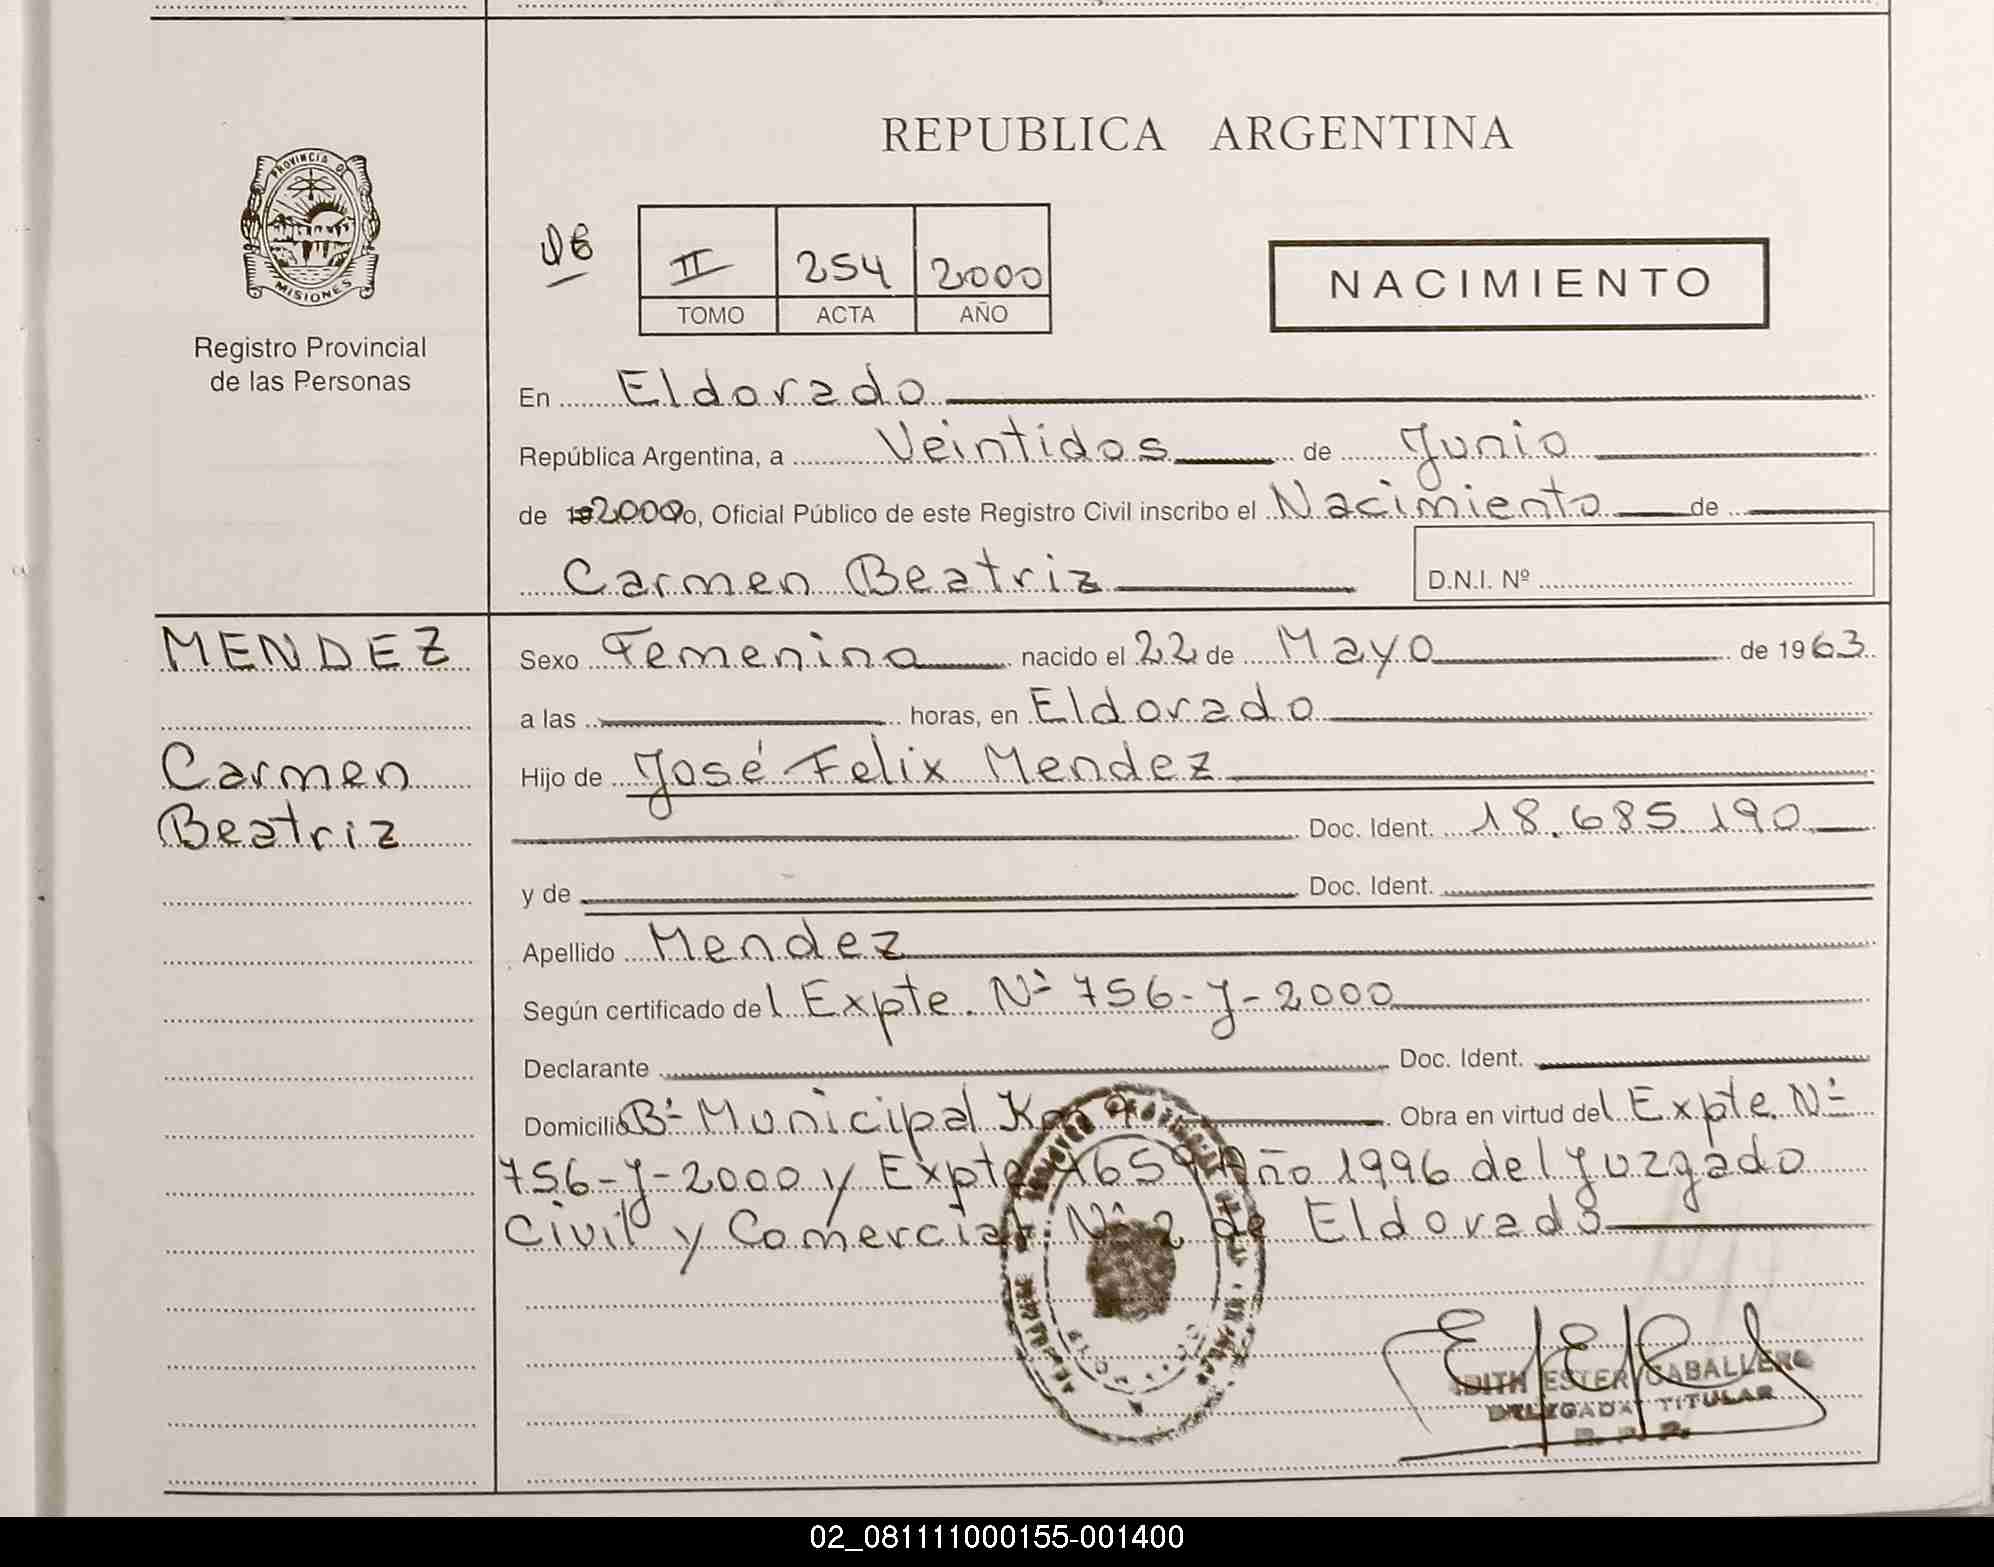 PROVINCIA DE
MISIONES
Registro Provincial
de las Personas
REPUBLICA ARGENTINA
II 254 2000
TOMO ACTA AÑO
NACIMIENTO
En Eldorado
República Argentina, a Veintidos de Junio
de 19 2000 o, Oficial Público de este Registro Civil inscribo el Nacimiento de
Carmen Beatriz D.N.I. Nº
MENDEZ
Carmen
Beatriz
Sexo Femenino nacido el 22 de Mayo de 1963
a las horas, en Eldorado
Hijo de José Felix Mendez
Doc. Ident. 18.685.190
y de Doc. Ident.
Apellido Mendez
Según certificado del Expte. Nº 756-J-2000
Declarante Doc. Ident.
Domicilio Bº Municipal Km 9 Obra en virtud del Expte. Nº
756-J-2000 y Expte 4659 Año 1996 del Juzgado
Civil y Comercial Nº 2 de Eldorado
EDITH ESTER CABALLERO
DELEGADA TITULAR
R. P. P.
02_081111000155-001400